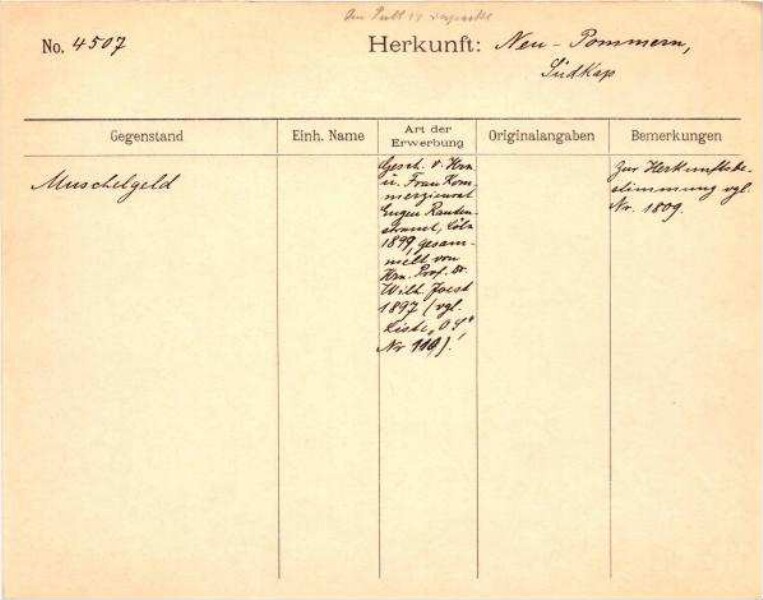 No. 4507
Herkunft: Neu-Pommern,
Südkap
Gegenstand
Einh. Name
Art der
Erwerbung
Originalangaben
Bemerkungen
Muschelgeld
Gesch. v. Hrn
u. Frau Kom-
merzienrat
Eugen Rauten-
strauch, Cöln
1899, gesam-
melt von
Hrn. Prof. Dr.
Wilh. Joest
1897 (vgl.
Liste „OS“
Nr 119)!
Zur Herkunftsbe-
stimmung vgl.
Nr. 1809.